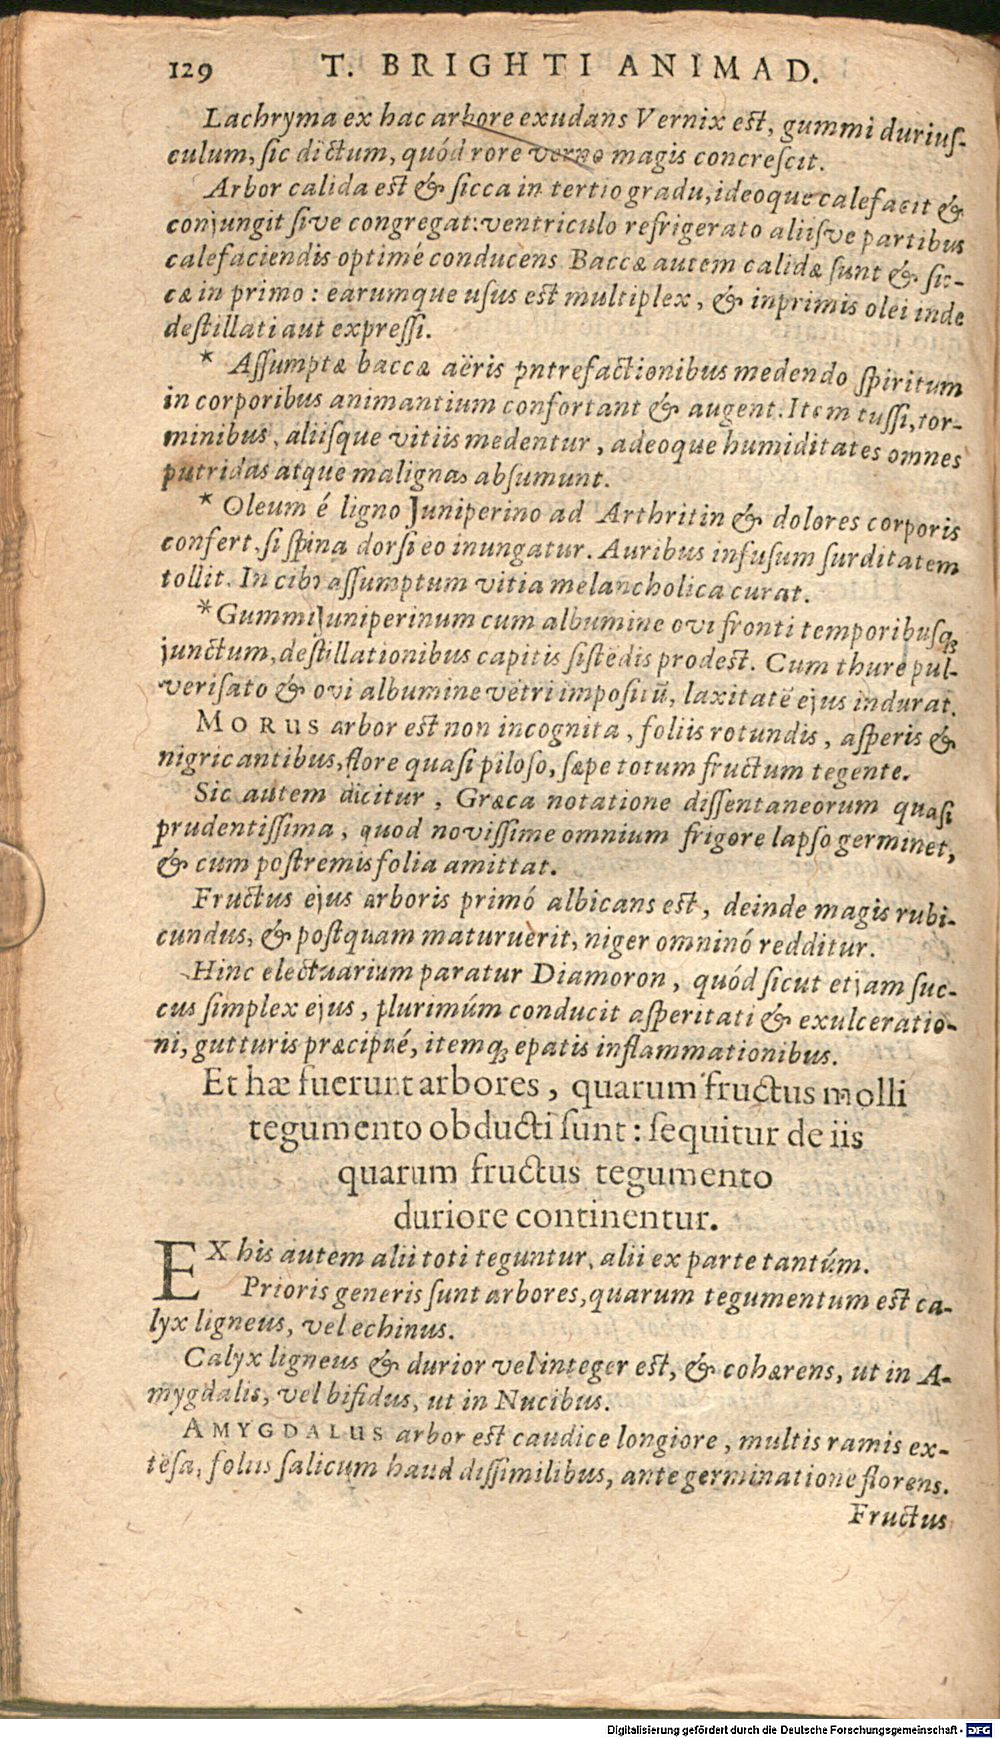 129 T. BRIGHTI ANIMAD.
Lachryma ex hac arbore exudans Vernix est, gummi durius-
culum, sic dictum, quód rore verno magis concrescit.
Arbor calida est & sicca in tertio gradu, ideoque calefacit &
conjungit sive congregat: ventriculo refrigerato aliisve partibus
calefaciendis optimé conducens. Baccæ autem calidæ sunt & sic-
cæ in primo: earumque usus est multiplex, & inprimis olei inde
destillati aut expressi.
* Assumptæ baccæ aëris pntrefactionibus medendo spiritum
in corporibus animantium confortant & augent. Item tussi, tor-
minibus, aliisque vitiis medentur, adeoque humiditates omnes
putridas atque malignas absumunt.
* Oleum é ligno Juniperino ad Arthritin & dolores corporis
confert, si spina dorsi eo inungatur. Auribus infusum surditatem
tollit. In cibr assumptum vitia melancholica curat.
* Gummi Juniperinum cum albumine ovi fronti temporibusq;
junctum, destillationibus capitis sistēdis prodest. Cum thure pul-
verisato & ovi albumine vētri impositū, laxitatē ejus indurat.
MORUS arbor est non incognita, foliis rotundis, asperis &
nigricantibus, flore quasi piloso, sæpe totum fructum tegente.
Sic autem dicitur, Græca notatione dissentaneorum quasi
prudentissima, quod novissime omnium frigore lapso germinet,
& cum postremis folia amittat.
Fructus ejus arboris primó albicans est, deinde magis rubi-
cundus, & postquam maturuerit, niger omninó redditur.
Hinc electuarium paratur Diamoron, quód sicut etjam suc-
cus simplex ejus, plurimúm conducit asperitati & exulceratio-
ni, gutturis præcipué, itemq; epatis inflammationibus.
Et hæ fuerunt arbores, quarum fructus molli
tegumento obducti sunt: sequitur de iis
quarum fructus tegumento
duriore continentur.
EX his autem alii toti teguntur, alii ex parte tantúm.
Prioris generis sunt arbores, quarum tegumentum est ca-
lyx ligneus, vel echinus.
Calyx ligneus & durior vel integer est, & cohærens, ut in A-
mygdalis, vel bifidus, ut in Nucibus.
AMYGDALUS arbor est caudice longiore, multis ramis ex-
tēsa, foliis salicum haud dissimilibus, ante germinatione florens.
Fructus
Digitalisierung gefördert durch die Deutsche Forschungsgemeinschaft - DFG